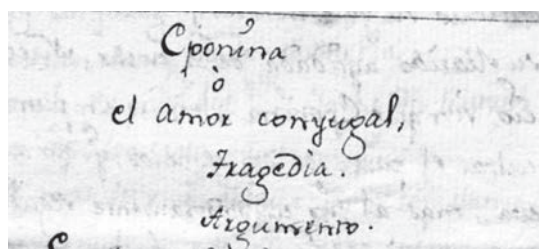 Eponina
ò
el amor conyugal,
Tragedia.
Argumento.